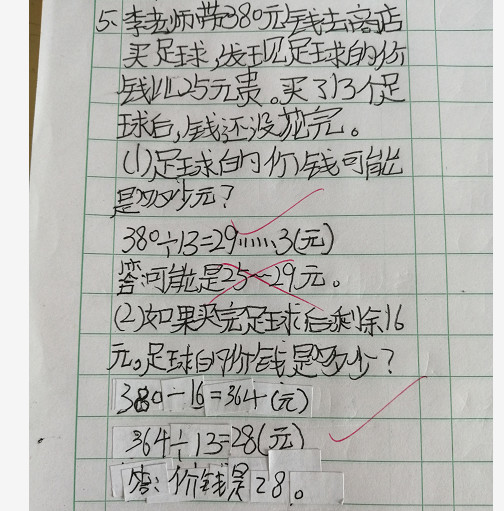 5、李老师带380元钱去商店
买足球,发现足球的价
钱比25元贵。买了13个足
球后,钱还没花完。
(1)足球的价钱可能
是多少元?
380÷13=29……3(元)
答:可能是25—29元。
(2)如果买完足球后剩余16
元。足球的价钱是多少?
380-16=364(元)
364÷13=28(元)
答:价钱是28。